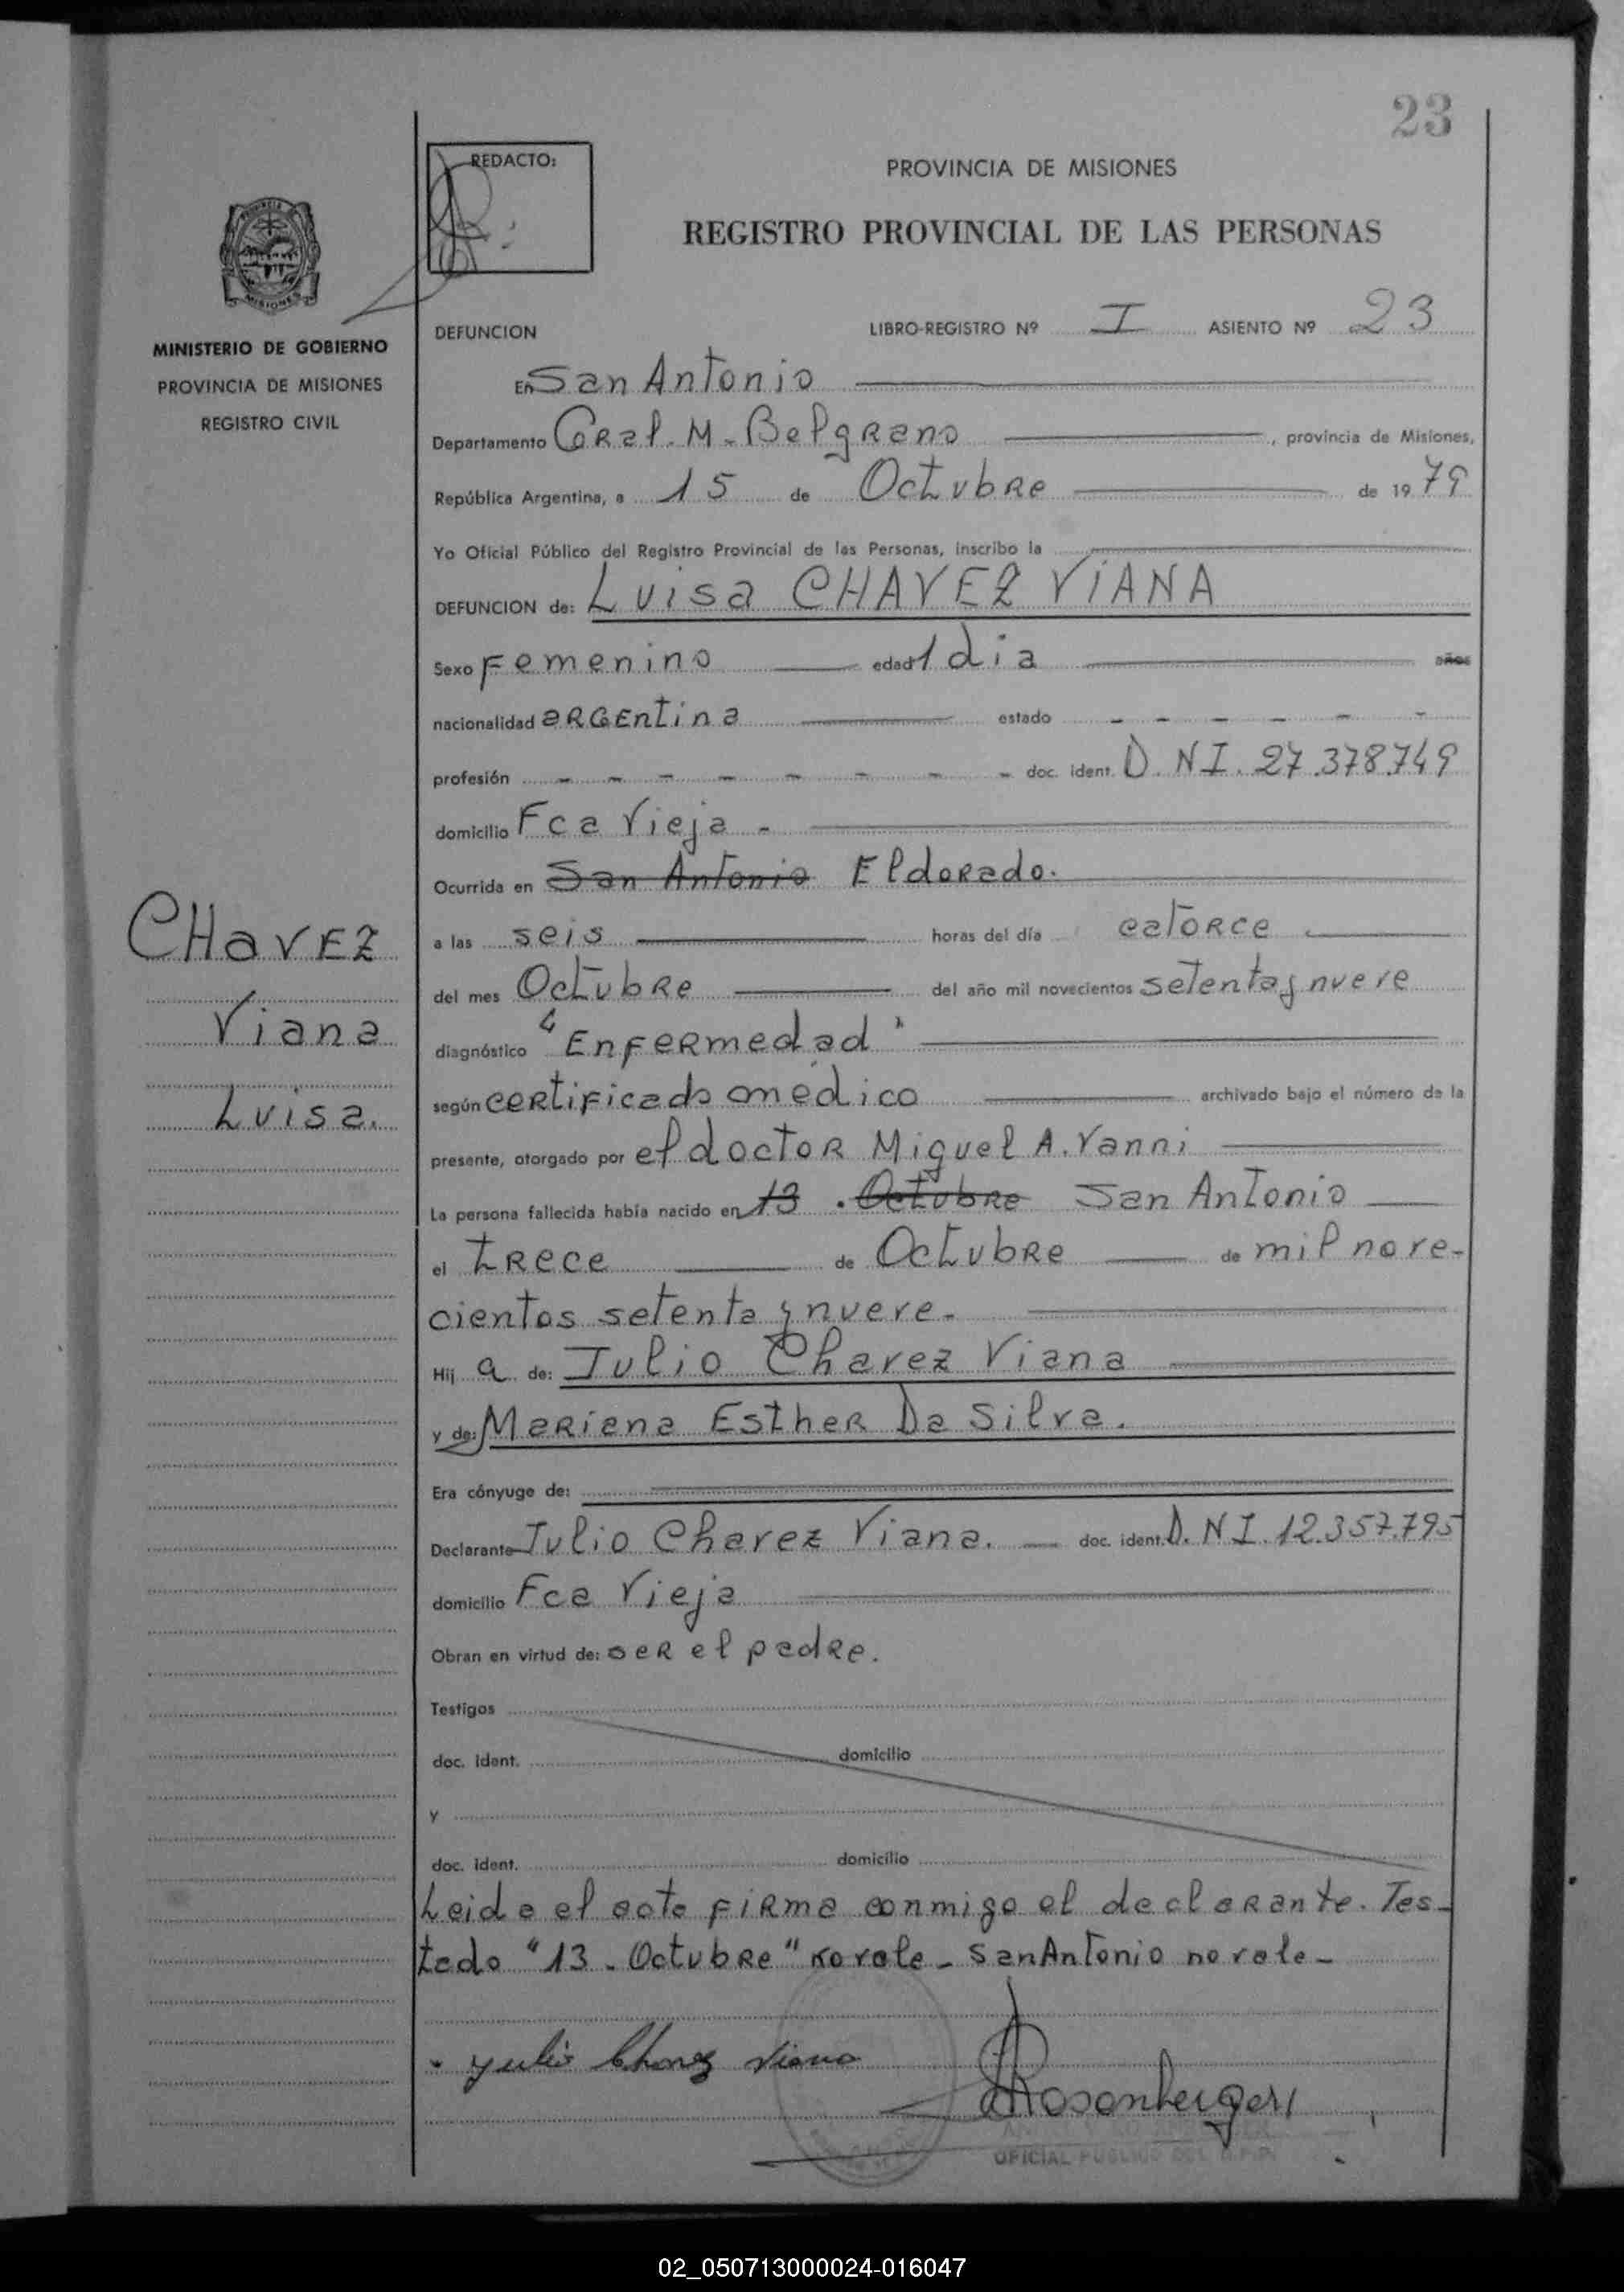 23
REDACTO:
PROVINCIA DE MISIONES
REGISTRO PROVINCIAL DE LAS PERSONAS
MISIONES
MINISTERIO DE GOBIERNO
PROVINCIA DE MISIONES
REGISTRO CIVIL
DEFUNCION LIBRO-REGISTRO Nº I ASIENTO Nº 23
En San Antonio
Departamento Gral. M. Belgrano, provincia de Misiones,
República Argentina, a 15 de Octubre de 19 79
Yo Oficial Público del Registro Provincial de las Personas, inscribo la
DEFUNCION de: Luisa CHAVEZ VIANA
Sexo Femenino edad 1 dia años
nacionalidad argentina estado - - - - - -
profesión - - - - - - - - doc. ident. D.N.I. 27.378.749
domicilio Fca Vieja -
Ocurrida en San Antonio Eldorado.
a las seis horas del día catorce
del mes Octubre del año mil novecientos setenta y nueve
diagnóstico "Enfermedad"
según certificado médico archivado bajo el número de la
presente, otorgado por el doctor Miguel A. Vanni
La persona fallecida había nacido en 13 . Octubre San Antonio
el trece de Octubre de mil nove-
cientos setenta y nueve.
Hij a de: Julio Chavez Viana
y de: Mariana Esther Da Silva.
Era cónyuge de:
Declarante Julio Chavez Viana. doc. ident. D.N.I. 12.357.795
domicilio Fca Vieja
Obran en virtud de: ser el padre.
Testigos
doc. ident. domicilio
y
doc. ident. domicilio
Leida el acta firma conmigo el declarante. Tes-
tado "13 - Octubre" no vale - San Antonio no vale -
Yulio Chavez Viana
Rosenberger
OFICIAL PUBLICO DEL R.P.P.
CHAVEZ
Viana
Luisa.
02_050713000024-016047